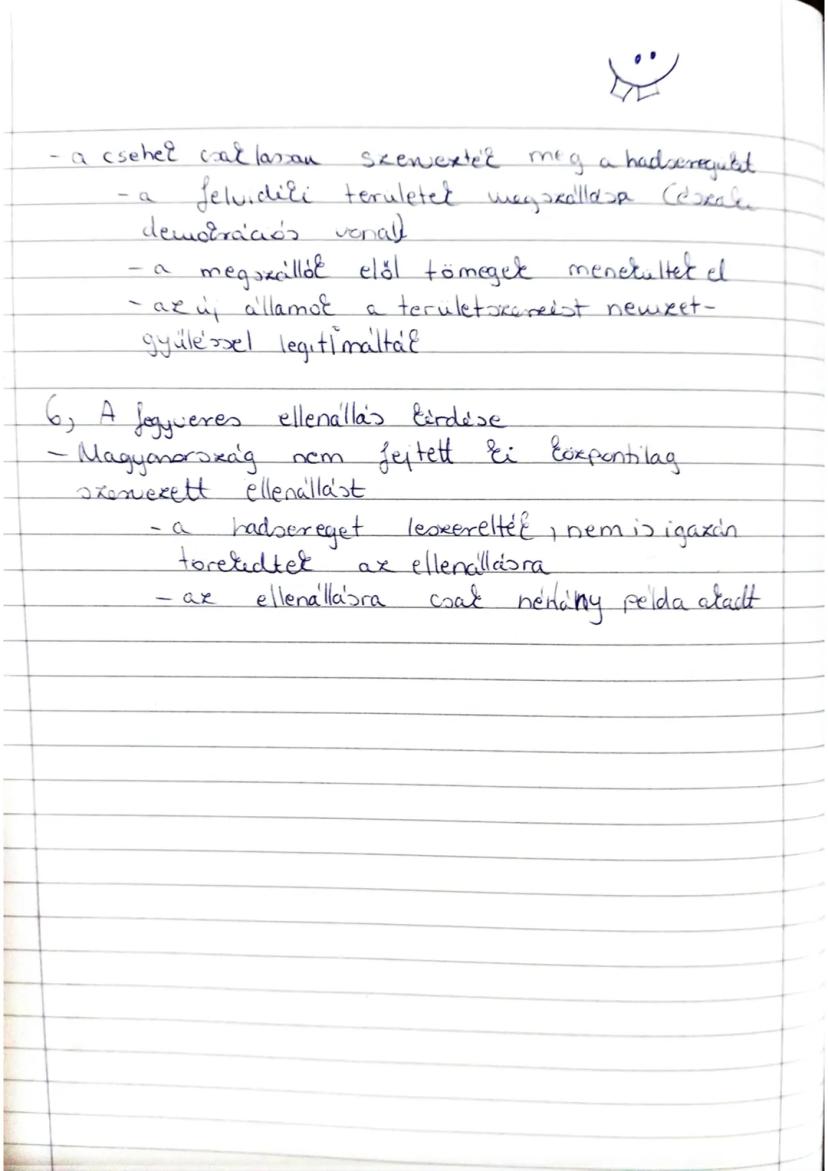 - a csehek csak lassan szervezték meg a hadseregüket
- a felvidéki területek megszállása (északi
demokrációs vonal)
- a megszállók elől tömegek menekültek el
- az új államok a területszerzést nemzet-
gyűléssel legitimálták
6, A fegyveres ellenállás kérdése
- Magyarország nem fejtett ki központilag
szervezett ellenállást
- a hadsereget leszerelték, nem is igazán
törekedtek az ellenállásra
- az ellenállásra csak néhány példa akadt